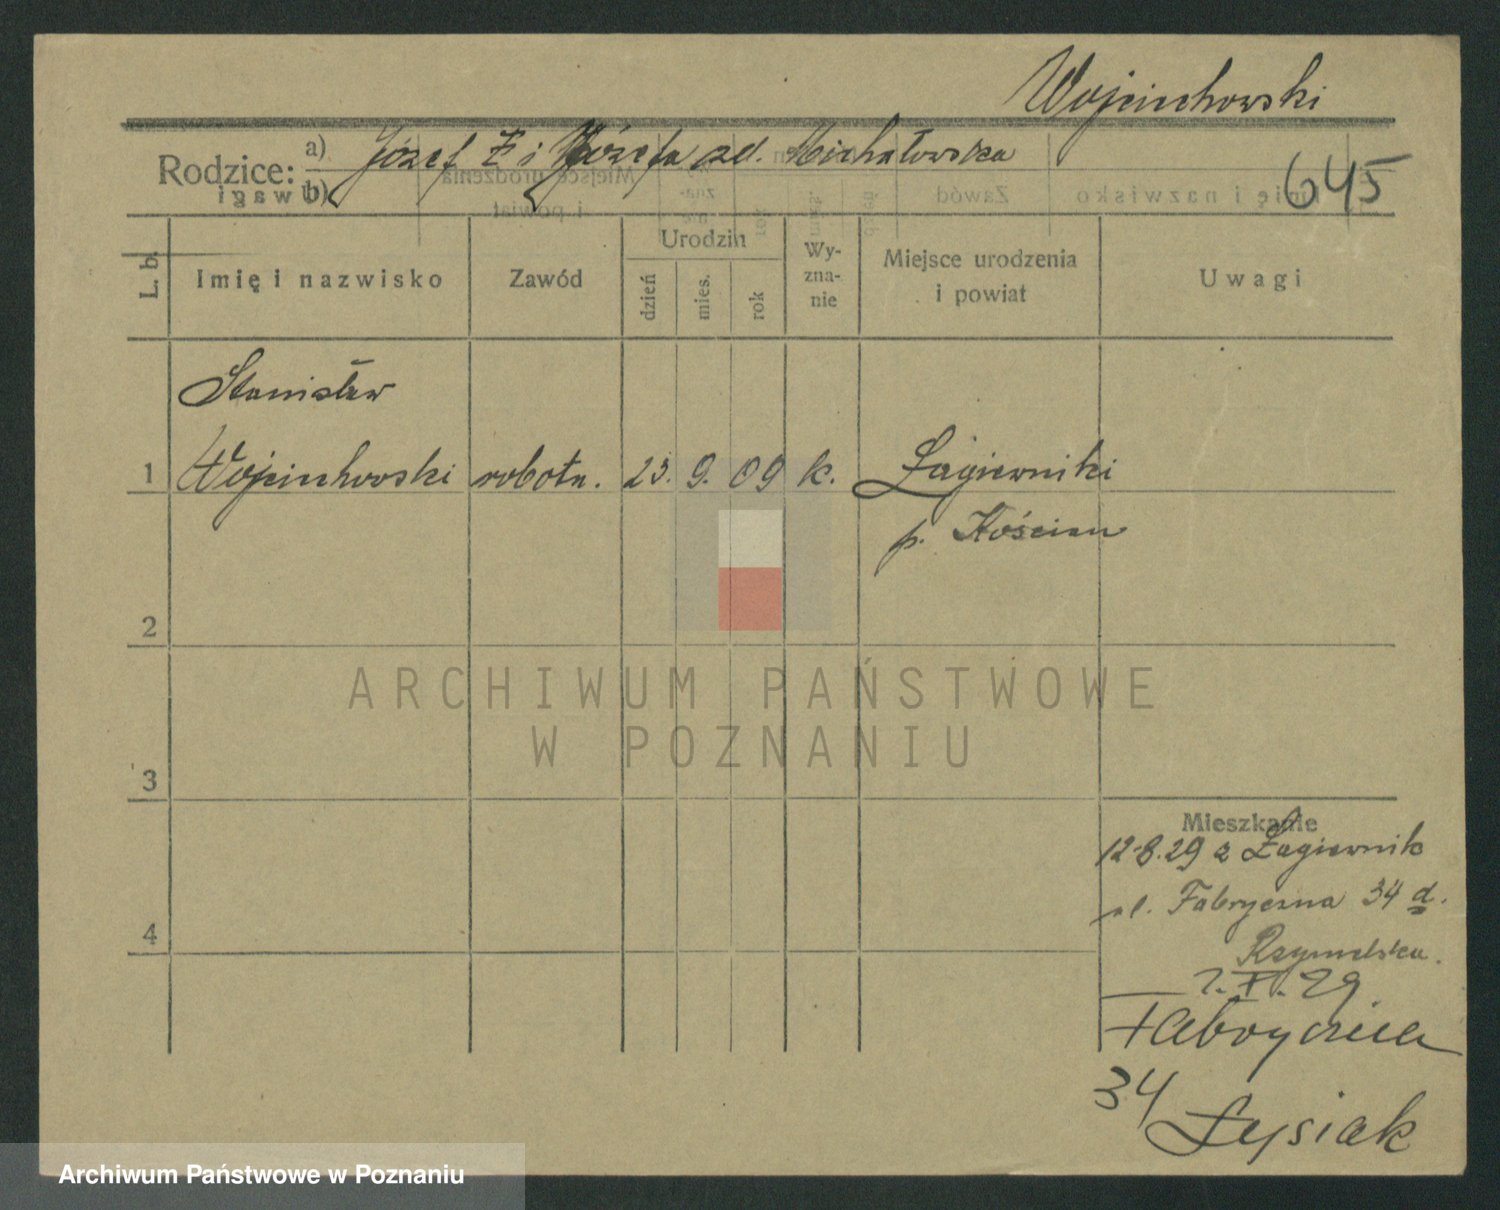 Wojciechowski
Rodzice: a) Józef i Józefa zd. Michałowska
b)
645
L. b.
Imię i nazwisko
Zawód
Urodzin
dzień
mies.
rok
Wy-
zna-
nie
Miejsce urodzenia
i powiat
Uwagi
Stanisław
1 Wojciechowski robotn. 23. 9. 09 k. Łagiewniki
p. Kościan
2
3
4
Mieszkanie
12.8.29 z Łagiewnik
ul. Fabryczna 34 d.
29
Fabryczna
34
Łysiak
ARCHIWUM PAŃSTWOWE
W POZNANIU
Archiwum Państwowe w Poznaniu